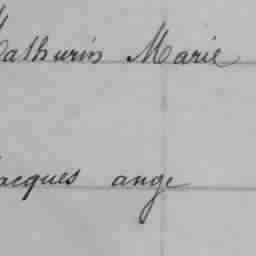 Mathurin Marie
Jacques ange